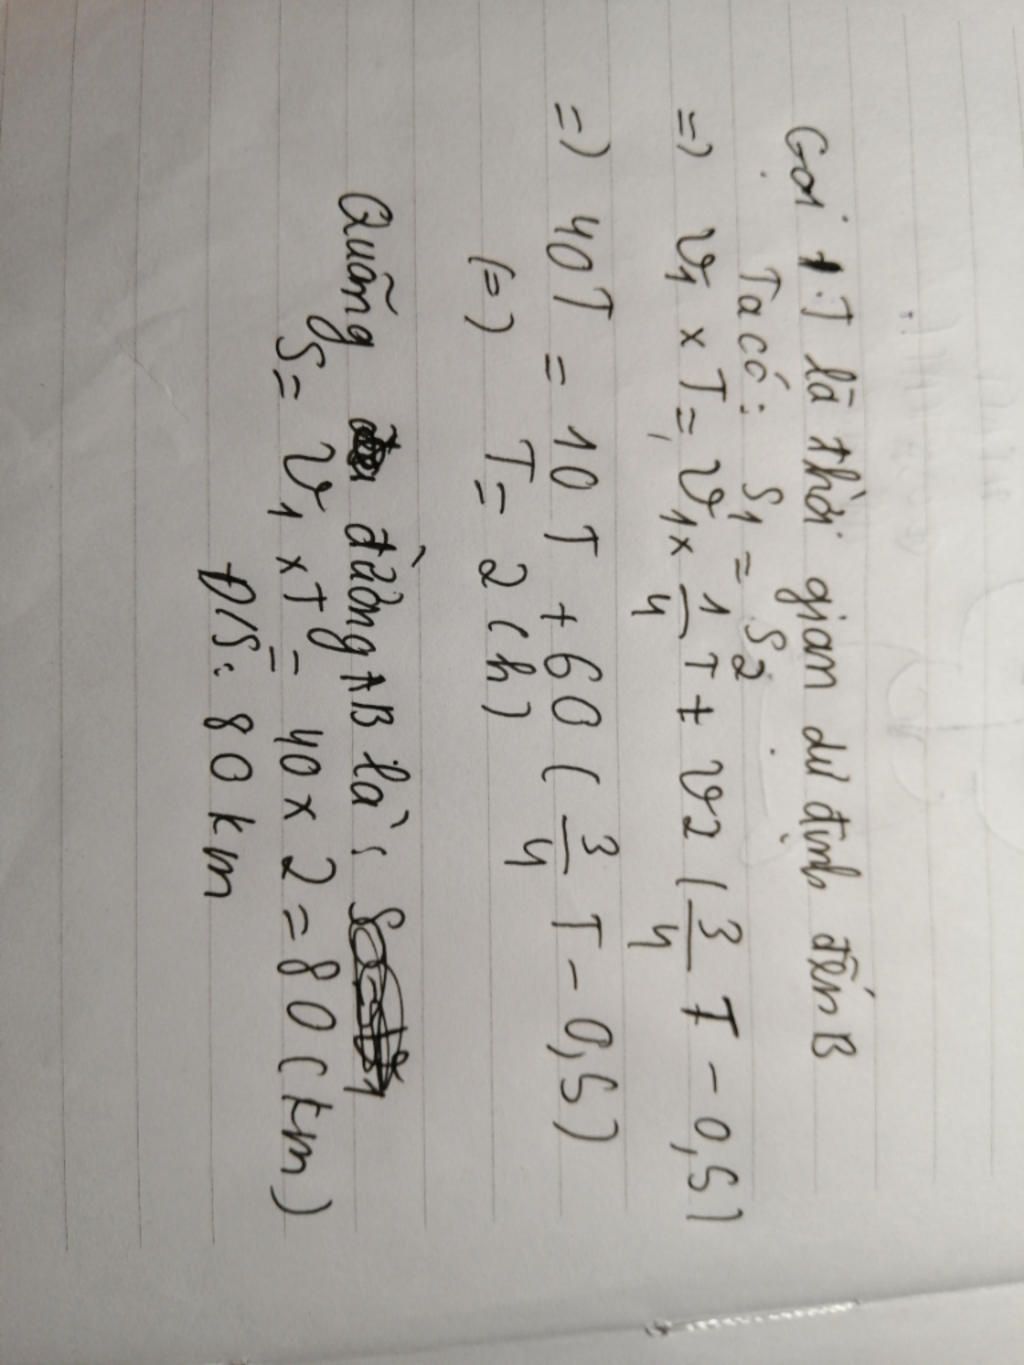 Gọi T là thời gian dự định đến B
Ta có: S1 = S2
=) v1 x T = v1 x 1/4 T + v2 (3/4 T - 0,5)
=) 40T = 10T + 60 (3/4 T - 0,5)
(=) T = 2 (h)
Quãng đường AB là:
S = v1 x T = 40 x 2 = 80 (km)
Đ/S: 80 km